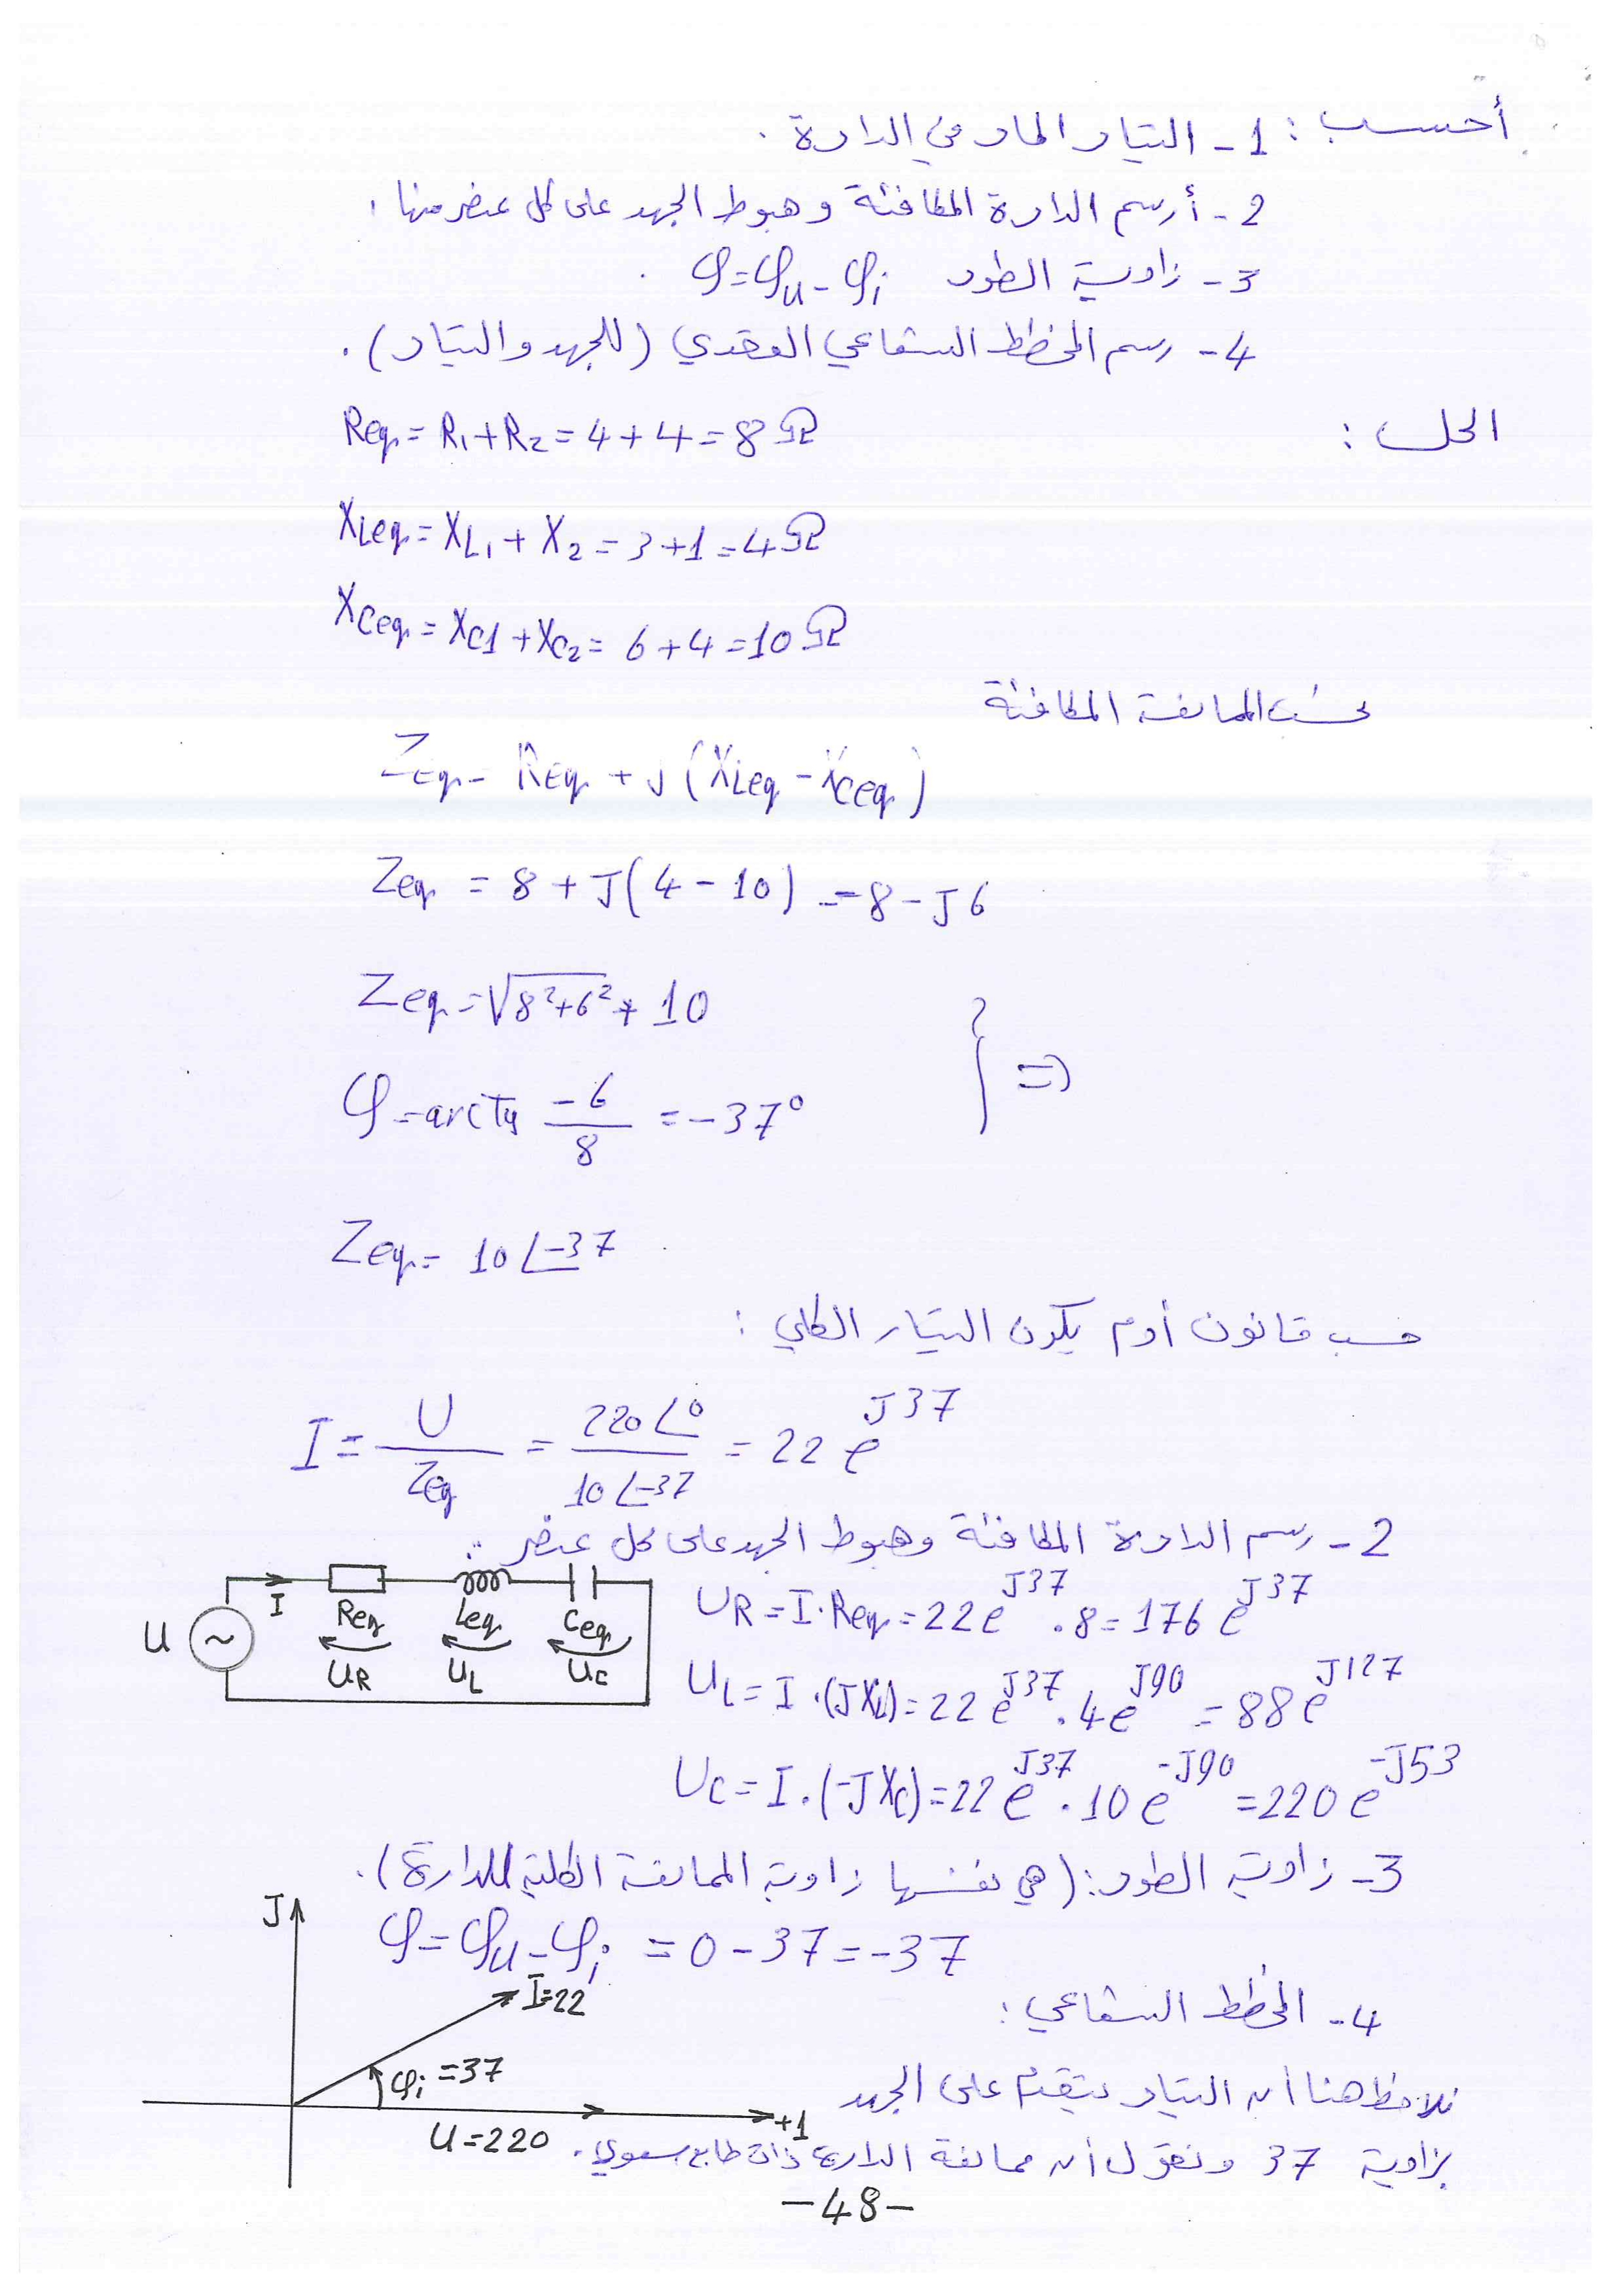 أحسب : 1- التيار المار في الدارة .
2- أرسم الدارة المكافئة وهبوط الجهد على كل عنصر منها .
3- زاوية الطور φ=φu-φi .
4- رسم المخطط الشعاعي العقدي (للجهد والتيار) .
الحل :
Req = R1+R2 = 4+4 = 8Ω
XLeq = XL1 + X2 = 3+1 = 4Ω
XCeq = XC1 + XC2 = 6+4 = 10Ω
نحسب الممانعة المكافئة
Zeq = Req + J (XLeq - XCeq)
Zeq = 8 + J(4 - 10) = 8 - J6
Zeq = √8²+6² + 10
φ = arctg -6/8 = -37°
} =>
Zeq = 10∠-37
حسب قانون أوم يكون التيار الكلي :
I = U/Zeq = 220∠0/10∠-37 = 22 e^J37
2- رسم الدارة المكافئة وهبوط الجهد على كل عنصر :
U I Req Leq Ceq
UR UL UC
UR = I.Req = 22e^J37 . 8 = 176 e^J37
UL = I.(JXL) = 22e^J37 . 4e^J90 = 88e^J127
UC = I.(-JXC) = 22e^J37 . 10e^-J90 = 220e^-J53
3- زاوية الطور : (هي نفسها زاوية الممانعة الكلية للدارة) .
φ = φu - φi = 0 - 37 = -37
4- المخطط الشعاعي :
J
I=22
φi = 37
U = 220
+1
نلاحظ هنا أن التيار يتقدم على الجهد
بزاوية 37 ونقول أن ممانعة الدارة ذات طابع سعوي .
-48-